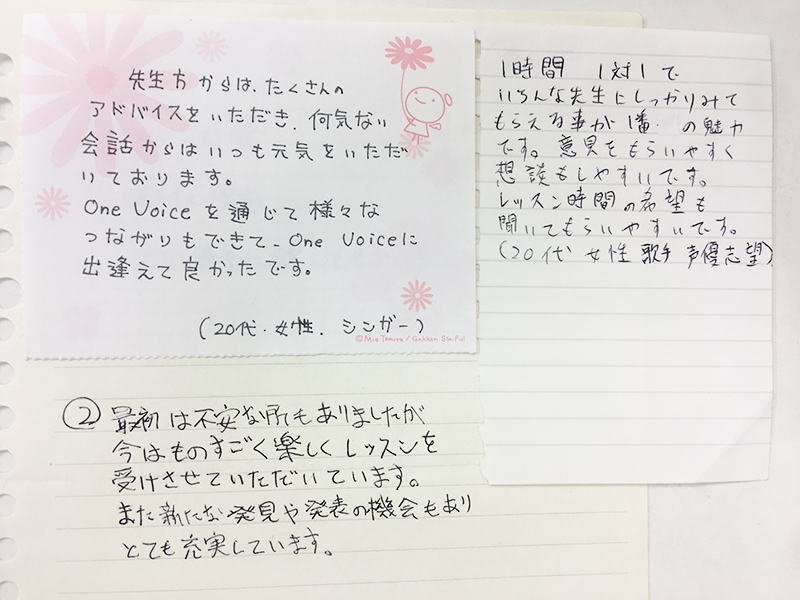 先生方からは、たくさんの
アドバイスをいただき、何気ない
会話からはいつも元気をいただ
いております。
One Voiceを通じて様々な
つながりもできて、One Voiceに
出逢えて良かったです。
(20代・女性・シンガー)
©Mie Tamura / Gakken Sta:Ful
1時間 1対1で
いろんな先生にしっかりみて
もらえる事が1番の魅力
です。意見をもらいやすく
想談もしやすいです。
レッスン時間の希望も
聞いてもらいやすいです。
(20代 女性 歌手 声優志望)
② 最初は不安な所もありましたが
今はものすごく楽しくレッスンを
受けさせていただいています。
また新たな発見や発表の機会もあり
とても充実しています。